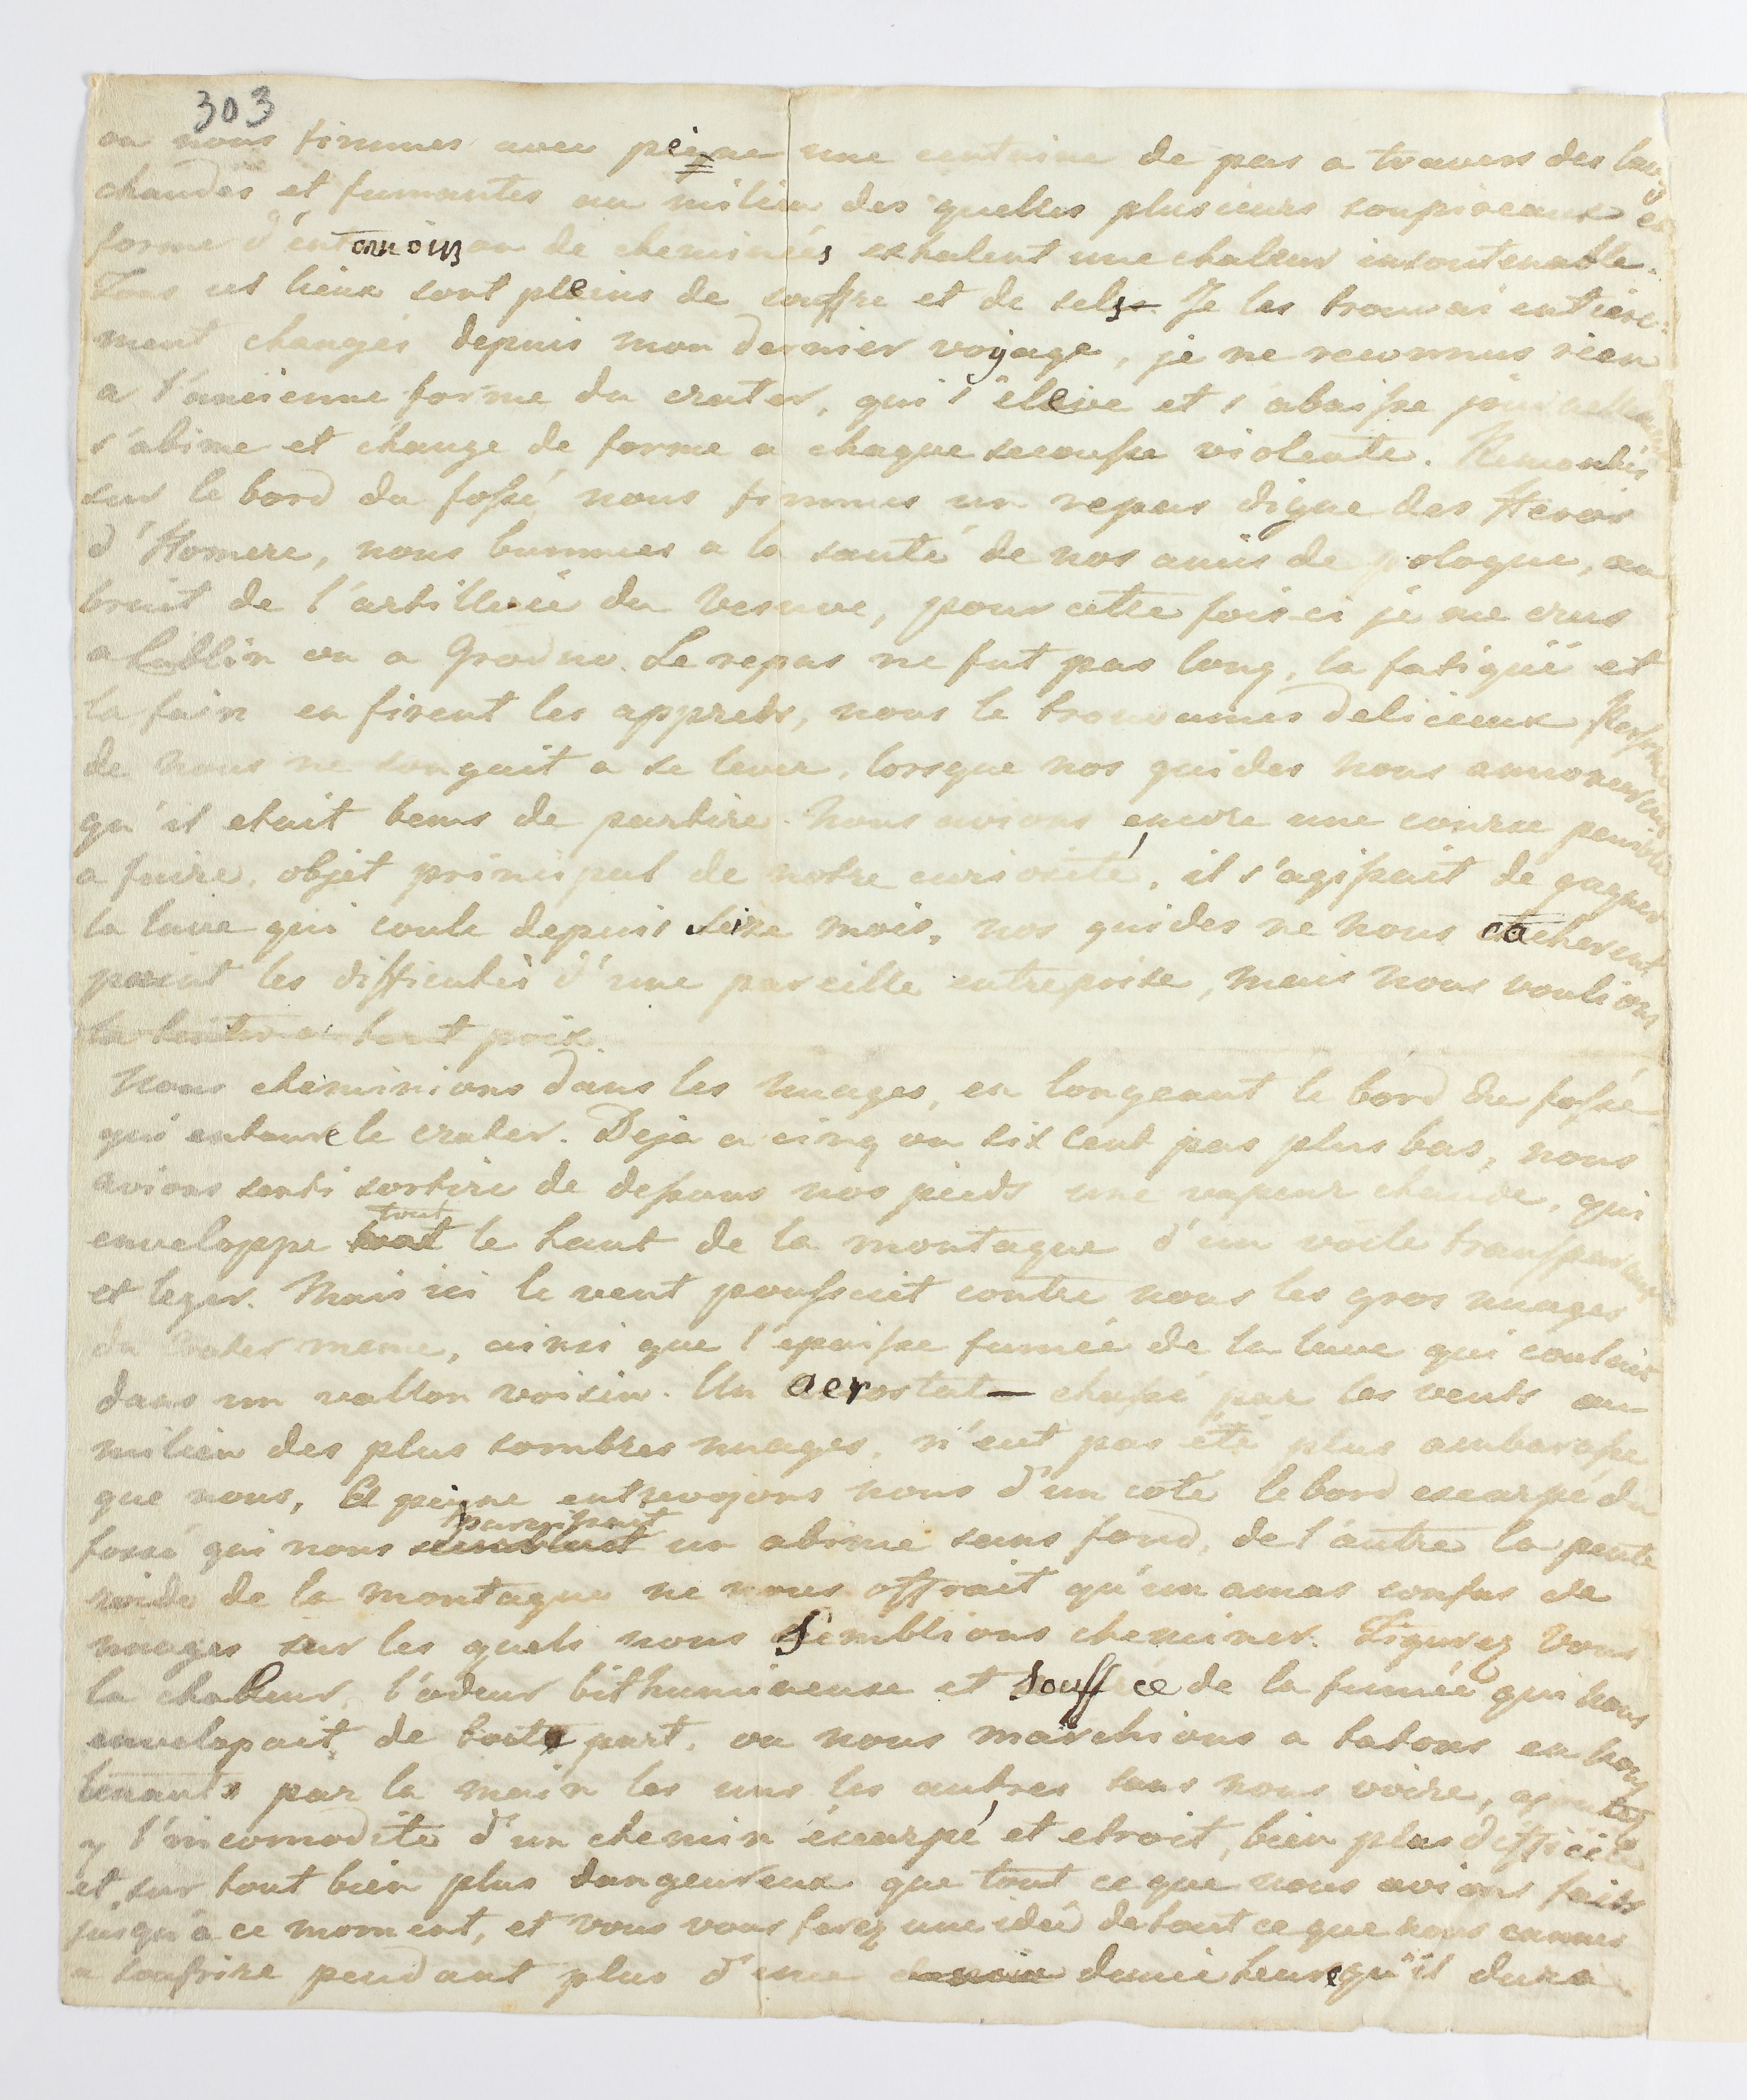 303
ou nous fimmes avec peine une centaine de pas a travers des laves
chaudes et fumantes au milieu des quelles plusieurs soupireaux en
forme d'entonnoirs ou de cheminées exhalent une chaleur insoutenable.
Tous ces lieux sont pleins de souffre et de sels. Je les trouvai entiere-
ment changés depuis mon dernier voyage, je ne reconnus rien
a l'ancienne forme du crater, qui s'éleive et s'abaisse journellement
s'abime et change de forme a chaque secousse violente. Remontés
sur le bord du fossé nous fimmes un repas digne des Heros
d'Homere, nous bummes a la santé de nos amis de pologne, au
bruit de l'artillerie du Vesuve, pour cette fois-ci je me crus
a Lublin ou a Grodno. Le repas ne fut pas long, la fatigüe et
la faim en firent les apprets, nous le trouvames delicieux Personne
de nous ne songait a se lever, lorsque nos guides nous annoncerent
qu'il etait tems de partire. Nous avions encore une course penible
a faire, objet principal de notre curiosité, il s'agissait de gagner
la lave qui coule depuis seize mois, nos guides ne nous cacherent
point les difficultés d'une pareille entreprise, mais nous voulions
la tenter a tout prix.
Nous cheminions dans les nuages, en longeant le bord du fossé
qui entoure le crater. Deja a cinq ou six cent pas plus bas, nous
avions senti sortire de dessous nos pieds une vapeur chaude, qui
enveloppe tout le haut de la montagne d'un voile transparent
et leger. Mais ici le vent poussait contre nous les gros nuages
du crater meme, ainsi que l'epaisse fumée de la lave qui coulait
dans un vallon voisin. Un aerostat chassé par les vents au
milieu des plus sombres nuages, n'eut pas été plus ambarasse
que nous, A peine entrevojons nous d'un coté le bord escarpé du
fossé qui nous paraissait un abime sans fond, de l'autre la pente
roide de la montagne ne nous offrait qu'un amas confus de
nuages sur les quels nous semblions cheminer. Figurez Vous
la chaleur, l'odeur bithumineuse et souffrée de la fumée qui nous
envelopait de toute part, ou nous marchions a tatons en nous
tenants par la main les uns les autres sans nous voire, ajoutez
y l'incomodité d'un chemin éscarpé et etroit, bien plus difficile
et sur tout bien plus dangeureux que tout ce que nous avions faits
jusqu'a ce moment, et vous vous ferez une idée de tout ce que nous eumes
a soufrire pendant plus d'une demie heure qu'il dura.